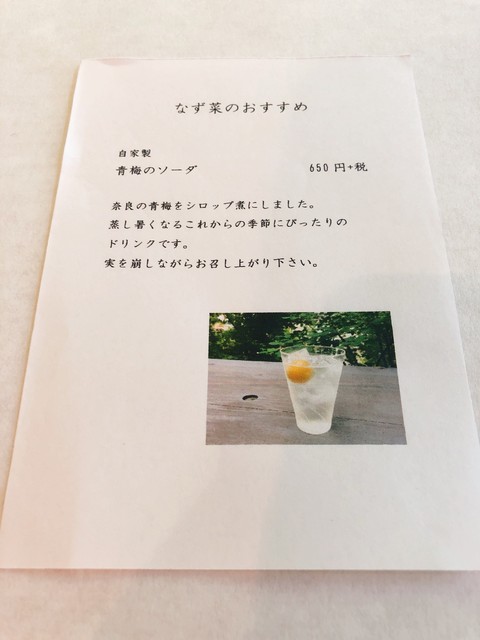 なず菜のおすすめ
自家製
青梅のソーダ 650円+税
奈良の青梅をシロップ煮にしました。
蒸し暑くなるこれからの季節にぴったりの
ドリンクです。
実を崩しながらお召し上がり下さい。